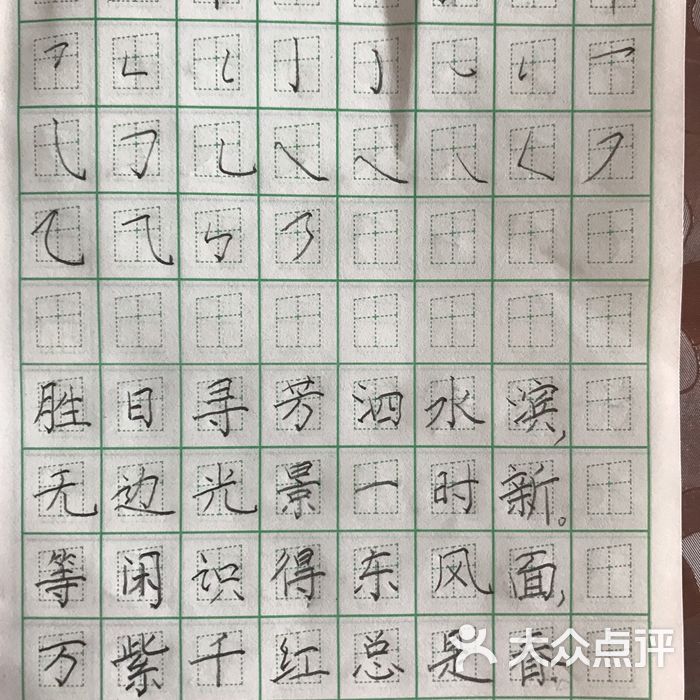 胜日寻芳泗水滨,
无边光景一时新。
等闲识得东风面,
万紫千红总是春.
大众点评